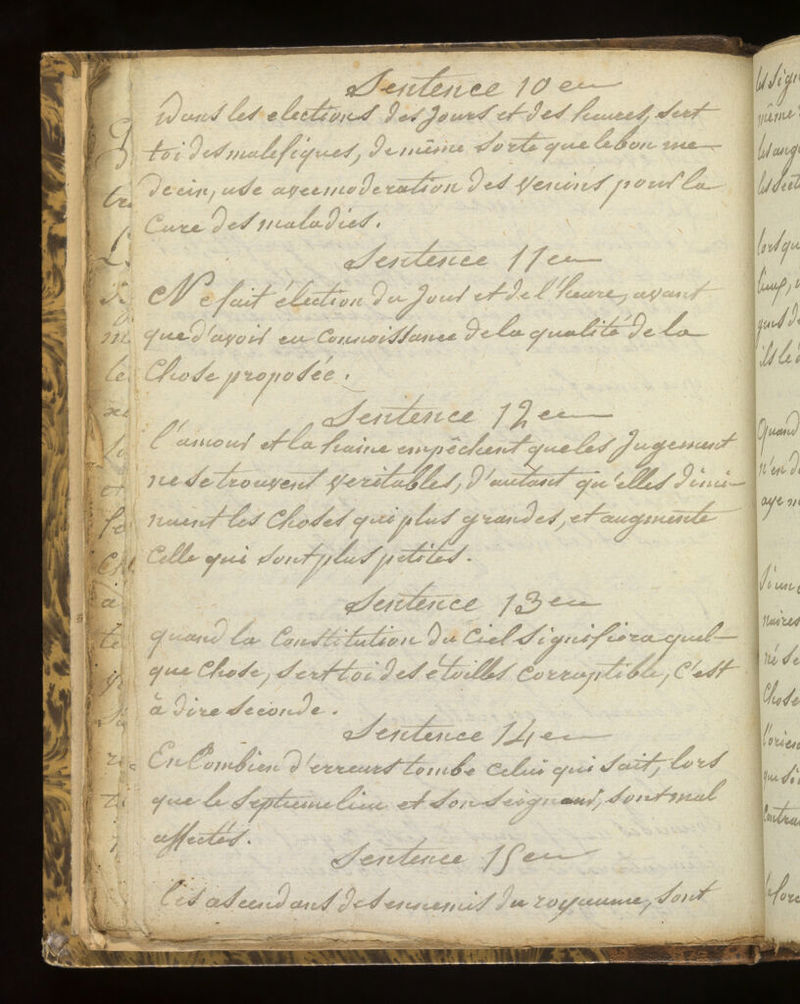 Sentence 10 em
Dans les elections des Jours et des heures, sert
toi des malefiques, de même sorte que le bon me
decin, use avec moderation des Venins pour la
Cure des maladies.
Sentence 11 em
Ne fait élection du Jour et de l'heure, avant
que d'avoir eu Connoissance de la qualité de la
Chose proposée.
Sentence 12 em
l'amour et la haine empêchent que les Jugement
ne se trouvent veritables, d'autant qu'elles dimi-
nuent les Choses qui plus grandes, et augmente
Celle qui sont plus petites.
Sentence 13 em
quand la Constitution du Ciel Signifiera quel-
que Chose, sert toi des étoilles Corruptible, C'est
à dire seconde.
Sentence 14 em
En Combien d'erreurs tombe Celui qui Sait, lors
que le Septieme lieu et son Seigneur, sont mal
affectés.
Sentence 15 em
les ascendans des ennemis du royaume, sont